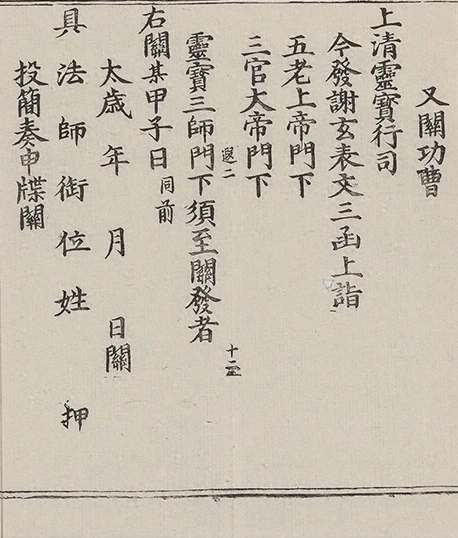 又關功曹
上清靈寶行司
今發謝玄表文三函上詣
五老上帝門下
三官大帝門下
遐二
十二
靈寶三師門下須至關發者
右關某甲子日同前
太歲年月日關
具法師銜位姓押
投簡奏申牒關